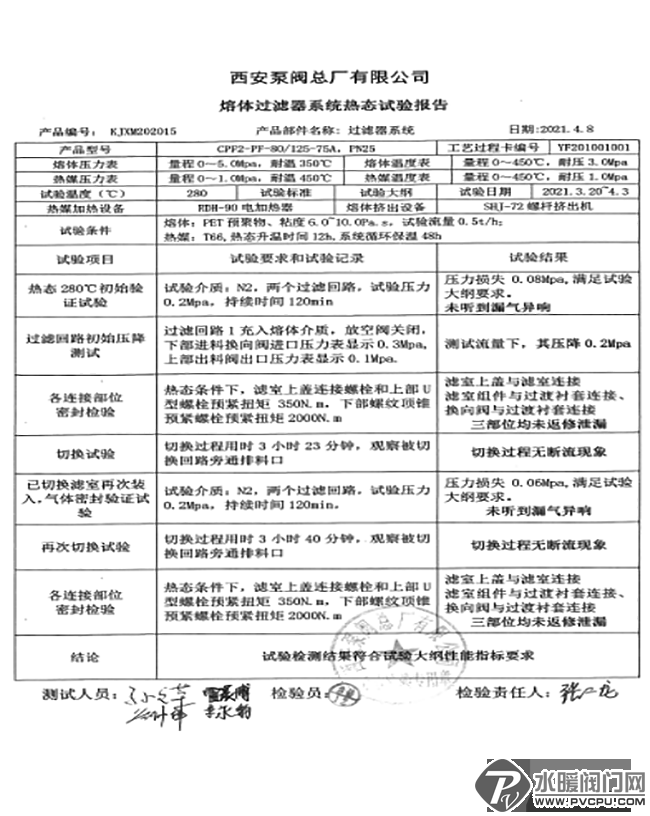 西安泵阀总厂有限公司
熔体过滤器系统热态试验报告
产品编号: KJXM202015 产品部件名称: 过滤器系统 日期:2021.4.8
产品型号 CPF2-PF-80/125-75A, PN25 工艺过程卡编号 YF201001001
熔体压力表 量程0~5.0Mpa, 耐温350℃ 熔体温度表 量程0~450℃, 耐压3.0Mpa
热媒压力表 量程0~1.0Mpa, 耐温450℃ 热媒温度表 量程0~450℃, 耐压1.0Mpa
试验温度(℃) 280 试验标准 试验大纲 试验日期 2021.3.20~4.3
热媒加热设备 RDH-90电加热器 熔体挤出设备 SHJ-72螺杆挤出机
试验条件 熔体: PET预聚物、粘度6.0~10.0Pa.s, 试验流量0.5t/h;
热媒: T66, 热态升温时间12h, 系统循环保温48h
试验项目 试验要求和试验记录 试验结果
热态280℃初始验证试验
试验介质: N2, 两个过滤回路, 试验压力
0.2Mpa, 持续时间120min
压力损失 0.08Mpa, 满足试验
大纲要求。
未听到漏气异响
过滤回路初始压降
测试
过滤回路1充入熔体介质, 放空阀关闭,
下部进料换向阀进口压力表显示0.3Mpa,
上部出料阀出口压力表显示0.1Mpa.
测试流量下, 其压降0.2Mpa
各连接部位
密封检验
热态条件下, 滤室上盖连接螺栓和上部U
型螺栓预紧扭矩 350N.m, 下部螺纹顶锥
预紧螺栓预紧扭矩2000N.m
滤室上盖与滤室连接
滤室组件与过渡衬套连接、
换向阀与过渡衬套连接
三部位均未返修泄漏
切换试验
切换过程用时3小时23分钟, 观察被切
换回路旁通排料口
切换过程无断流现象
已切换滤室再次装
入, 气体密封验证试
验
试验介质: N2, 两个过滤回路, 试验压力
0.2Mpa, 持续时间120min.
压力损失 0.06Mpa, 满足试验
大纲要求。
未听到漏气异响
再次切换试验
切换过程用时3小时40分钟, 观察被切
换回路旁通排料口
切换过程无断流现象
各连接部位
密封检验
热态条件下, 滤室上盖连接螺栓和上部U
型螺栓预紧扭矩 350N.m, 下部螺纹顶锥
预紧螺栓预紧扭矩2000N.m
滤室上盖与滤室连接
滤室组件与过渡衬套连接、
换向阀与过渡衬套连接
三部位均未返修泄漏
结论 试验检测结果符合试验大纲性能指标要求
测试人员: 检验员: 检验责任人:
水暖阀门网
WWW.PVCPU.COM